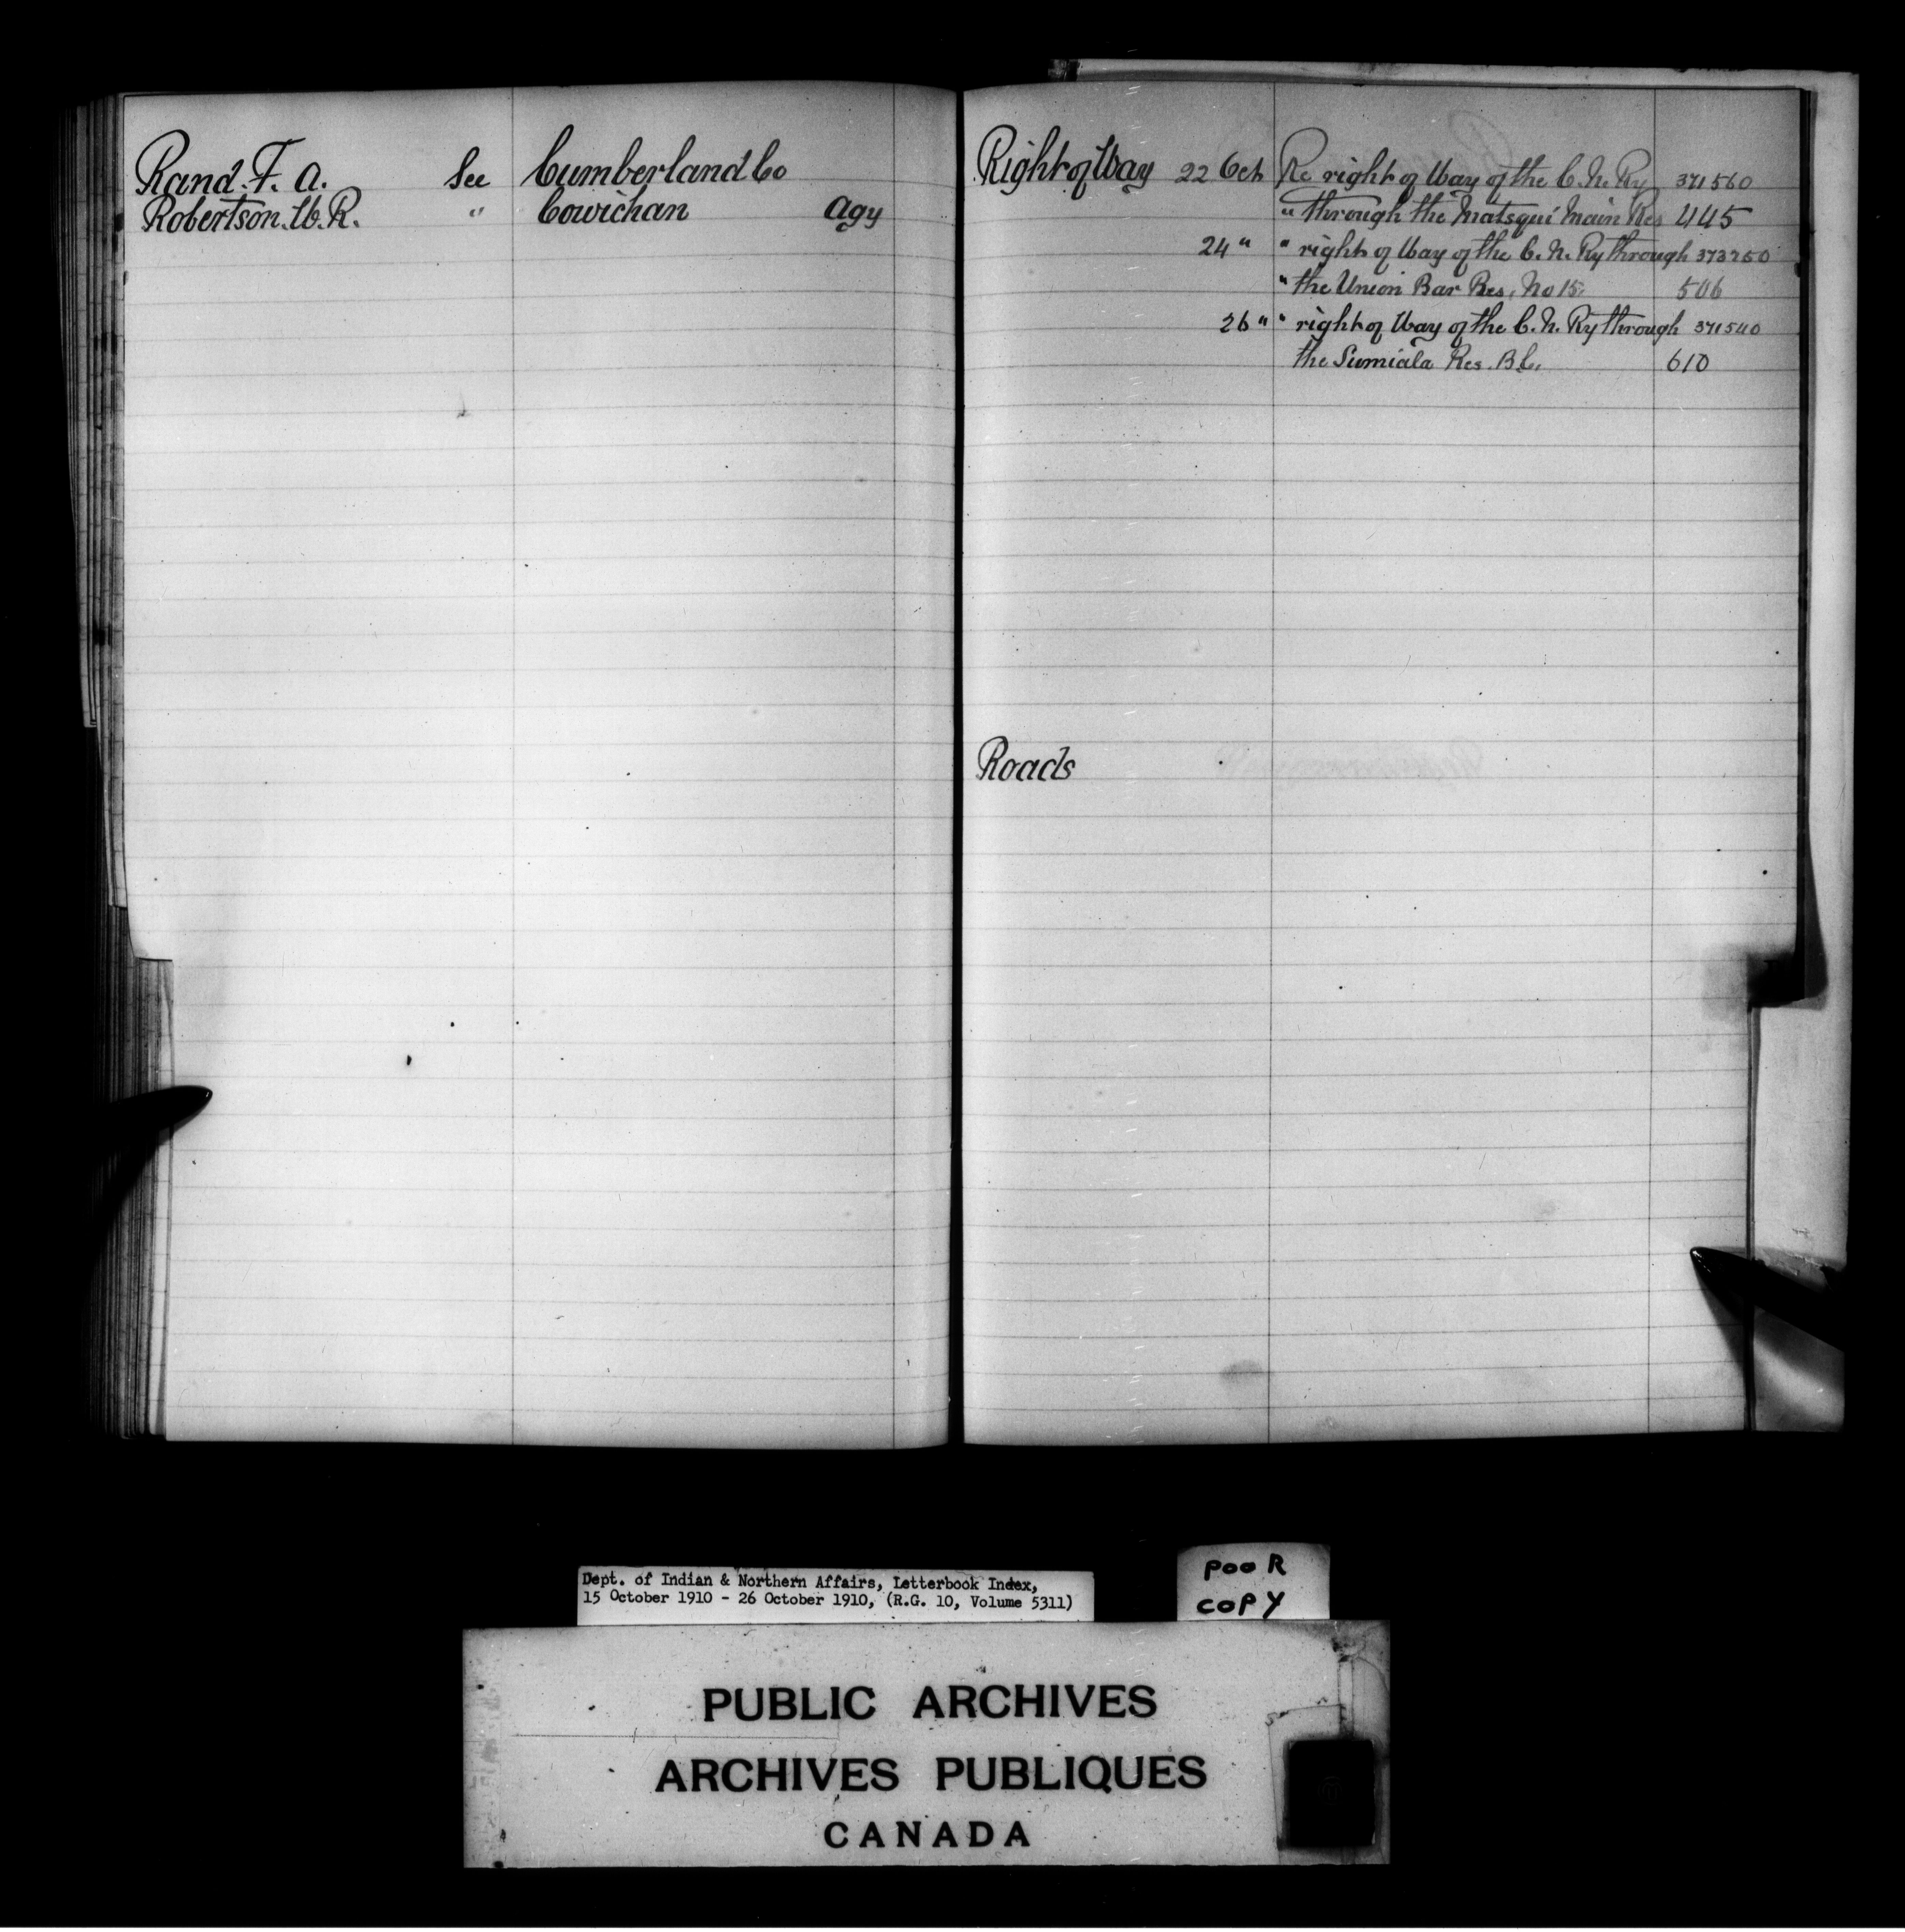 Rand. F. A. See Cumberland Co
Robertson. W. R. " Cowichan Agy
Right of Way 22 Oct Re right of Way of the C. N. Ry 371560
" through the Matsqui Main Res 445
24 " " right of Way of the C. N. Ry through 373250
" the Union Bar Res. No 15. 506
26 " " right of Way of the C. N. Ry through 371540
the Sumiala Res. B.C. 610
Roads
Dept. of Indian & Northern Affairs, Letterbook Index,
15 October 1910 - 26 October 1910, (R.G. 10, Volume 5311)
POOR
COPY
PUBLIC ARCHIVES
ARCHIVES PUBLIQUES
CANADA